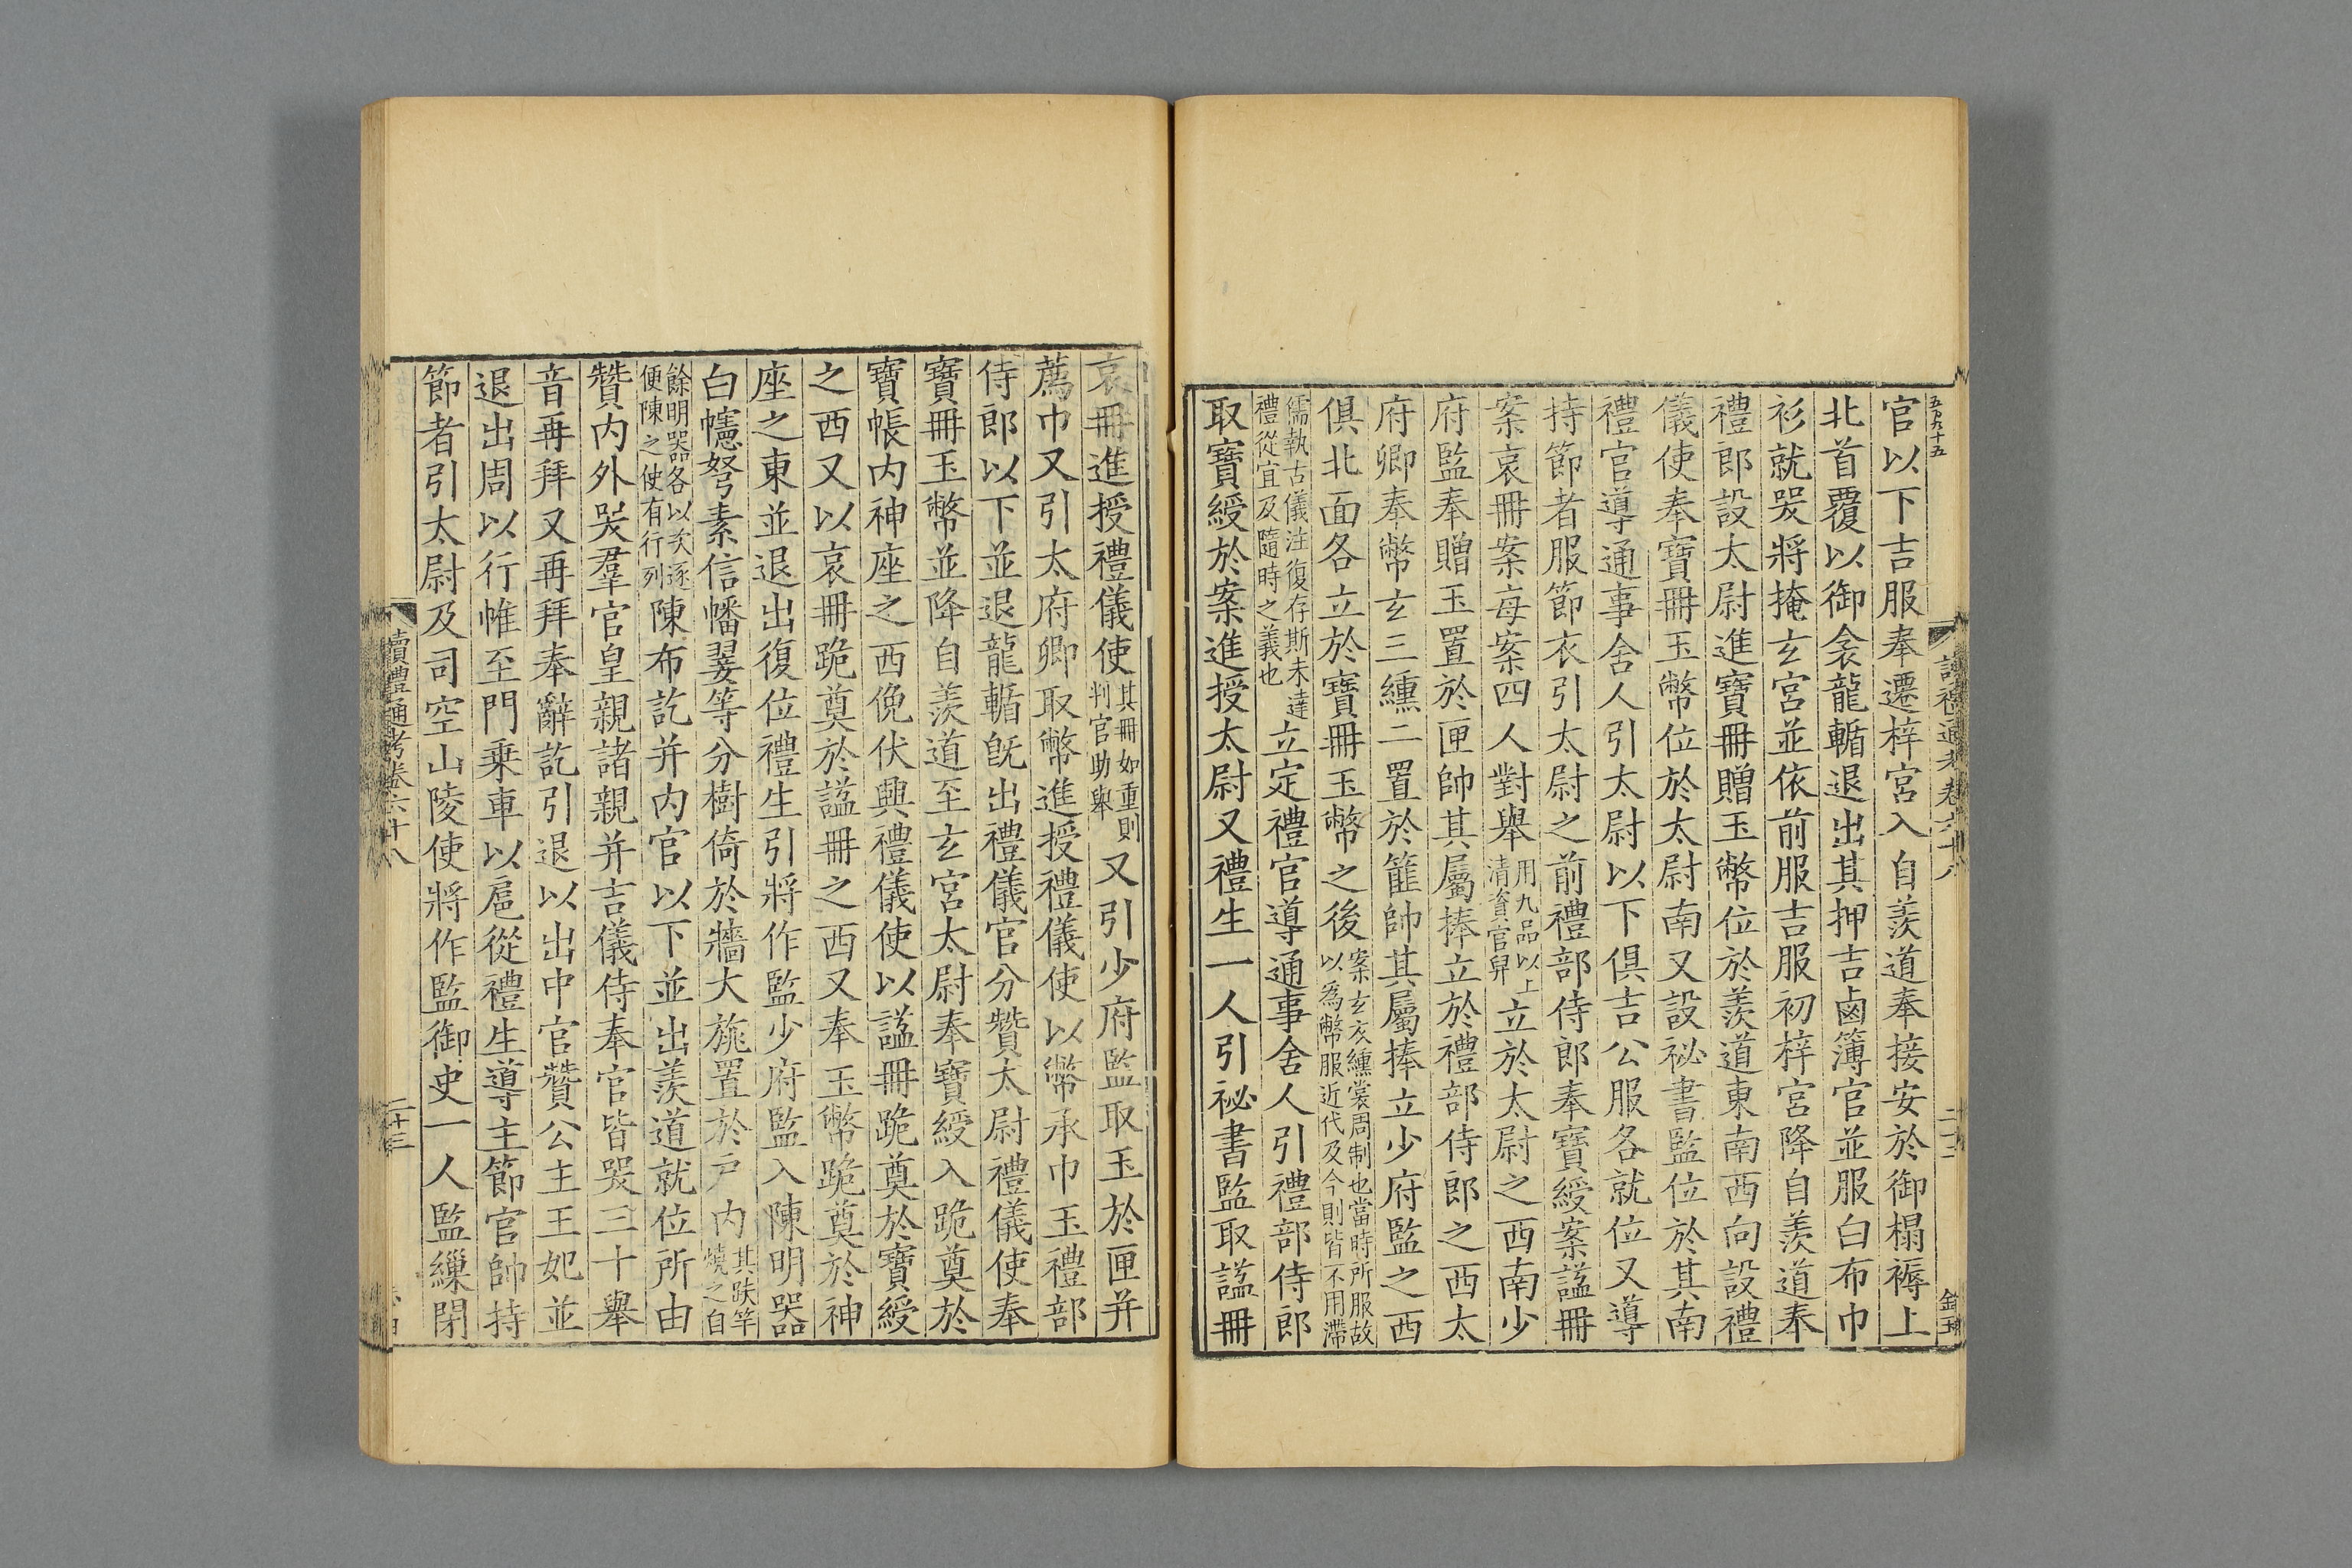 五百九十五
官以下吉服奉遷梓宮入自羨道奉接安於御榻褥上
北首覆以御衾龍輴退出其押吉鹵簿官並服白布巾
衫就哭將掩玄宮並依前服吉服初梓宮降自羨道奉
禮郎設太尉進寶冊贈玉幣位於羨道東南西向設禮
儀使奉寶冊玉幣位於太尉南又設祕書監位於其南
禮官導通事舍人引太尉以下俱吉公服各就位又導
持節者服節衣引太尉之前禮部侍郎奉寶綬案謚冊
案哀冊案每案四人對舉用九品以上清資官舁立於太尉之西南少
府監奉贈玉置於匣帥其屬捧立於禮部侍郎之西太
府卿奉幣玄三纁二置於篚帥其屬捧立少府監之西
俱北面各立於寶冊玉幣之後案玄衣纁裳周制也當時所服故以爲幣服近代及今則皆不用滯
儒執古儀注復存斯未達禮從宜及隨時之義也立定禮官導通事舍人引禮部侍郎
取寶綬於案進授太尉又禮生一人引祕書監取謚冊
哀冊進授禮儀使其冊如重則判官助舉又引少府監取玉於匣并
薦巾又引太府卿取幣進授禮儀使以幣承巾玉禮部
侍郎以下並退龍輴旣出禮儀官分贊太尉禮儀使奉
寶冊玉幣並降自羨道至玄宮太尉奉寶綬入跪奠於
寶帳内神座之西俛伏興禮儀使以謚冊跪奠於寶綬
之西又以哀冊跪奠於謚冊之西又奉玉幣跪奠於神
座之東並退出復位禮生引將作監少府監入陳明器
白幰弩素信幡翣等分樹倚於牆大旐置於戶内其趺竿燒之自
餘明器各以次逐便陳之使有行列陳布訖并内官以下並出羨道就位所由
贊内外哭羣官皇親諸親并吉儀侍奉官皆哭三十舉
音再拜又再拜奉辭訖引退以出中官贊公主王妃並
退出周以行帷至門乘車以扈從禮生導主節官帥持
節者引太尉及司空山陵使將作監御史一人監鏁閉
讀禮通考卷六十八
二十三